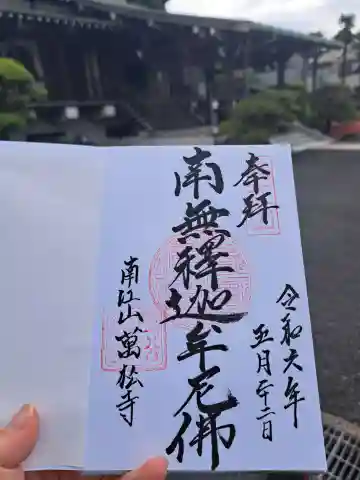 奉拝
令和六年
五月十二日
南無釋迦牟尼佛
南江山萬松寺